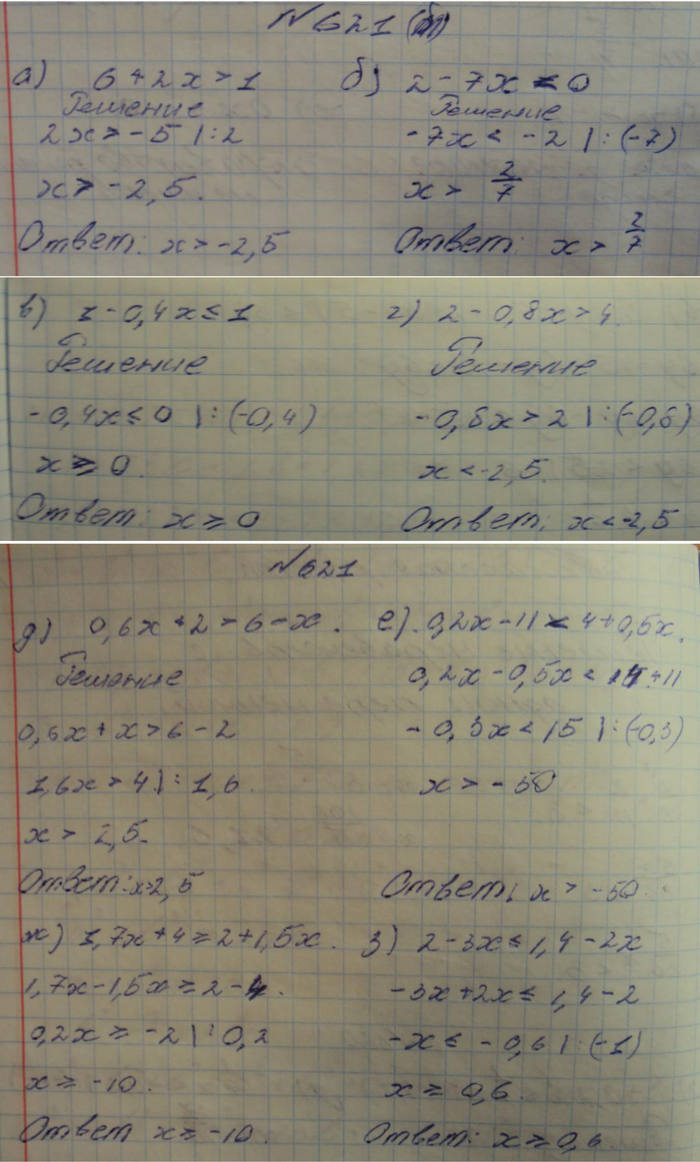 №621
а) 6+2x>1 б) 2-7x<0
Решение Решение
2x>-5 |:2 -7x<-2 |:(-7)
x>-2,5. x>2/7
Ответ: x>-2,5 Ответ: x>2/7
в) 1-0,4x≤1 г) 2-0,8x>4
Решение Решение
-0,4x≤0 |:(-0,4) -0,8x>2 |:(-0,8)
x≥0. x<-2,5.
Ответ: x≥0 Ответ: x<-2,5
№621
д) 0,6x+2>6-x. е). 0,2x-11<4+0,5x.
Решение 0,2x-0,5x<4+11
0,6x+x>6-2 -0,3x<15 |:(-0,3)
1,6x>4 |:1,6. x>-50
x>2,5.
Ответ: x>2,5 Ответ: x>-50.
ж) 1,7x+4≥2+1,5x. з) 2-3x≤1,4-2x
1,7x-1,5x≥2-4. -3x+2x≤1,4-2
0,2x≥-2 |:0,2 -x≤-0,6 |:(-1)
x≥-10. x≥0,6.
Ответ x≥-10. Ответ: x≥0,6.